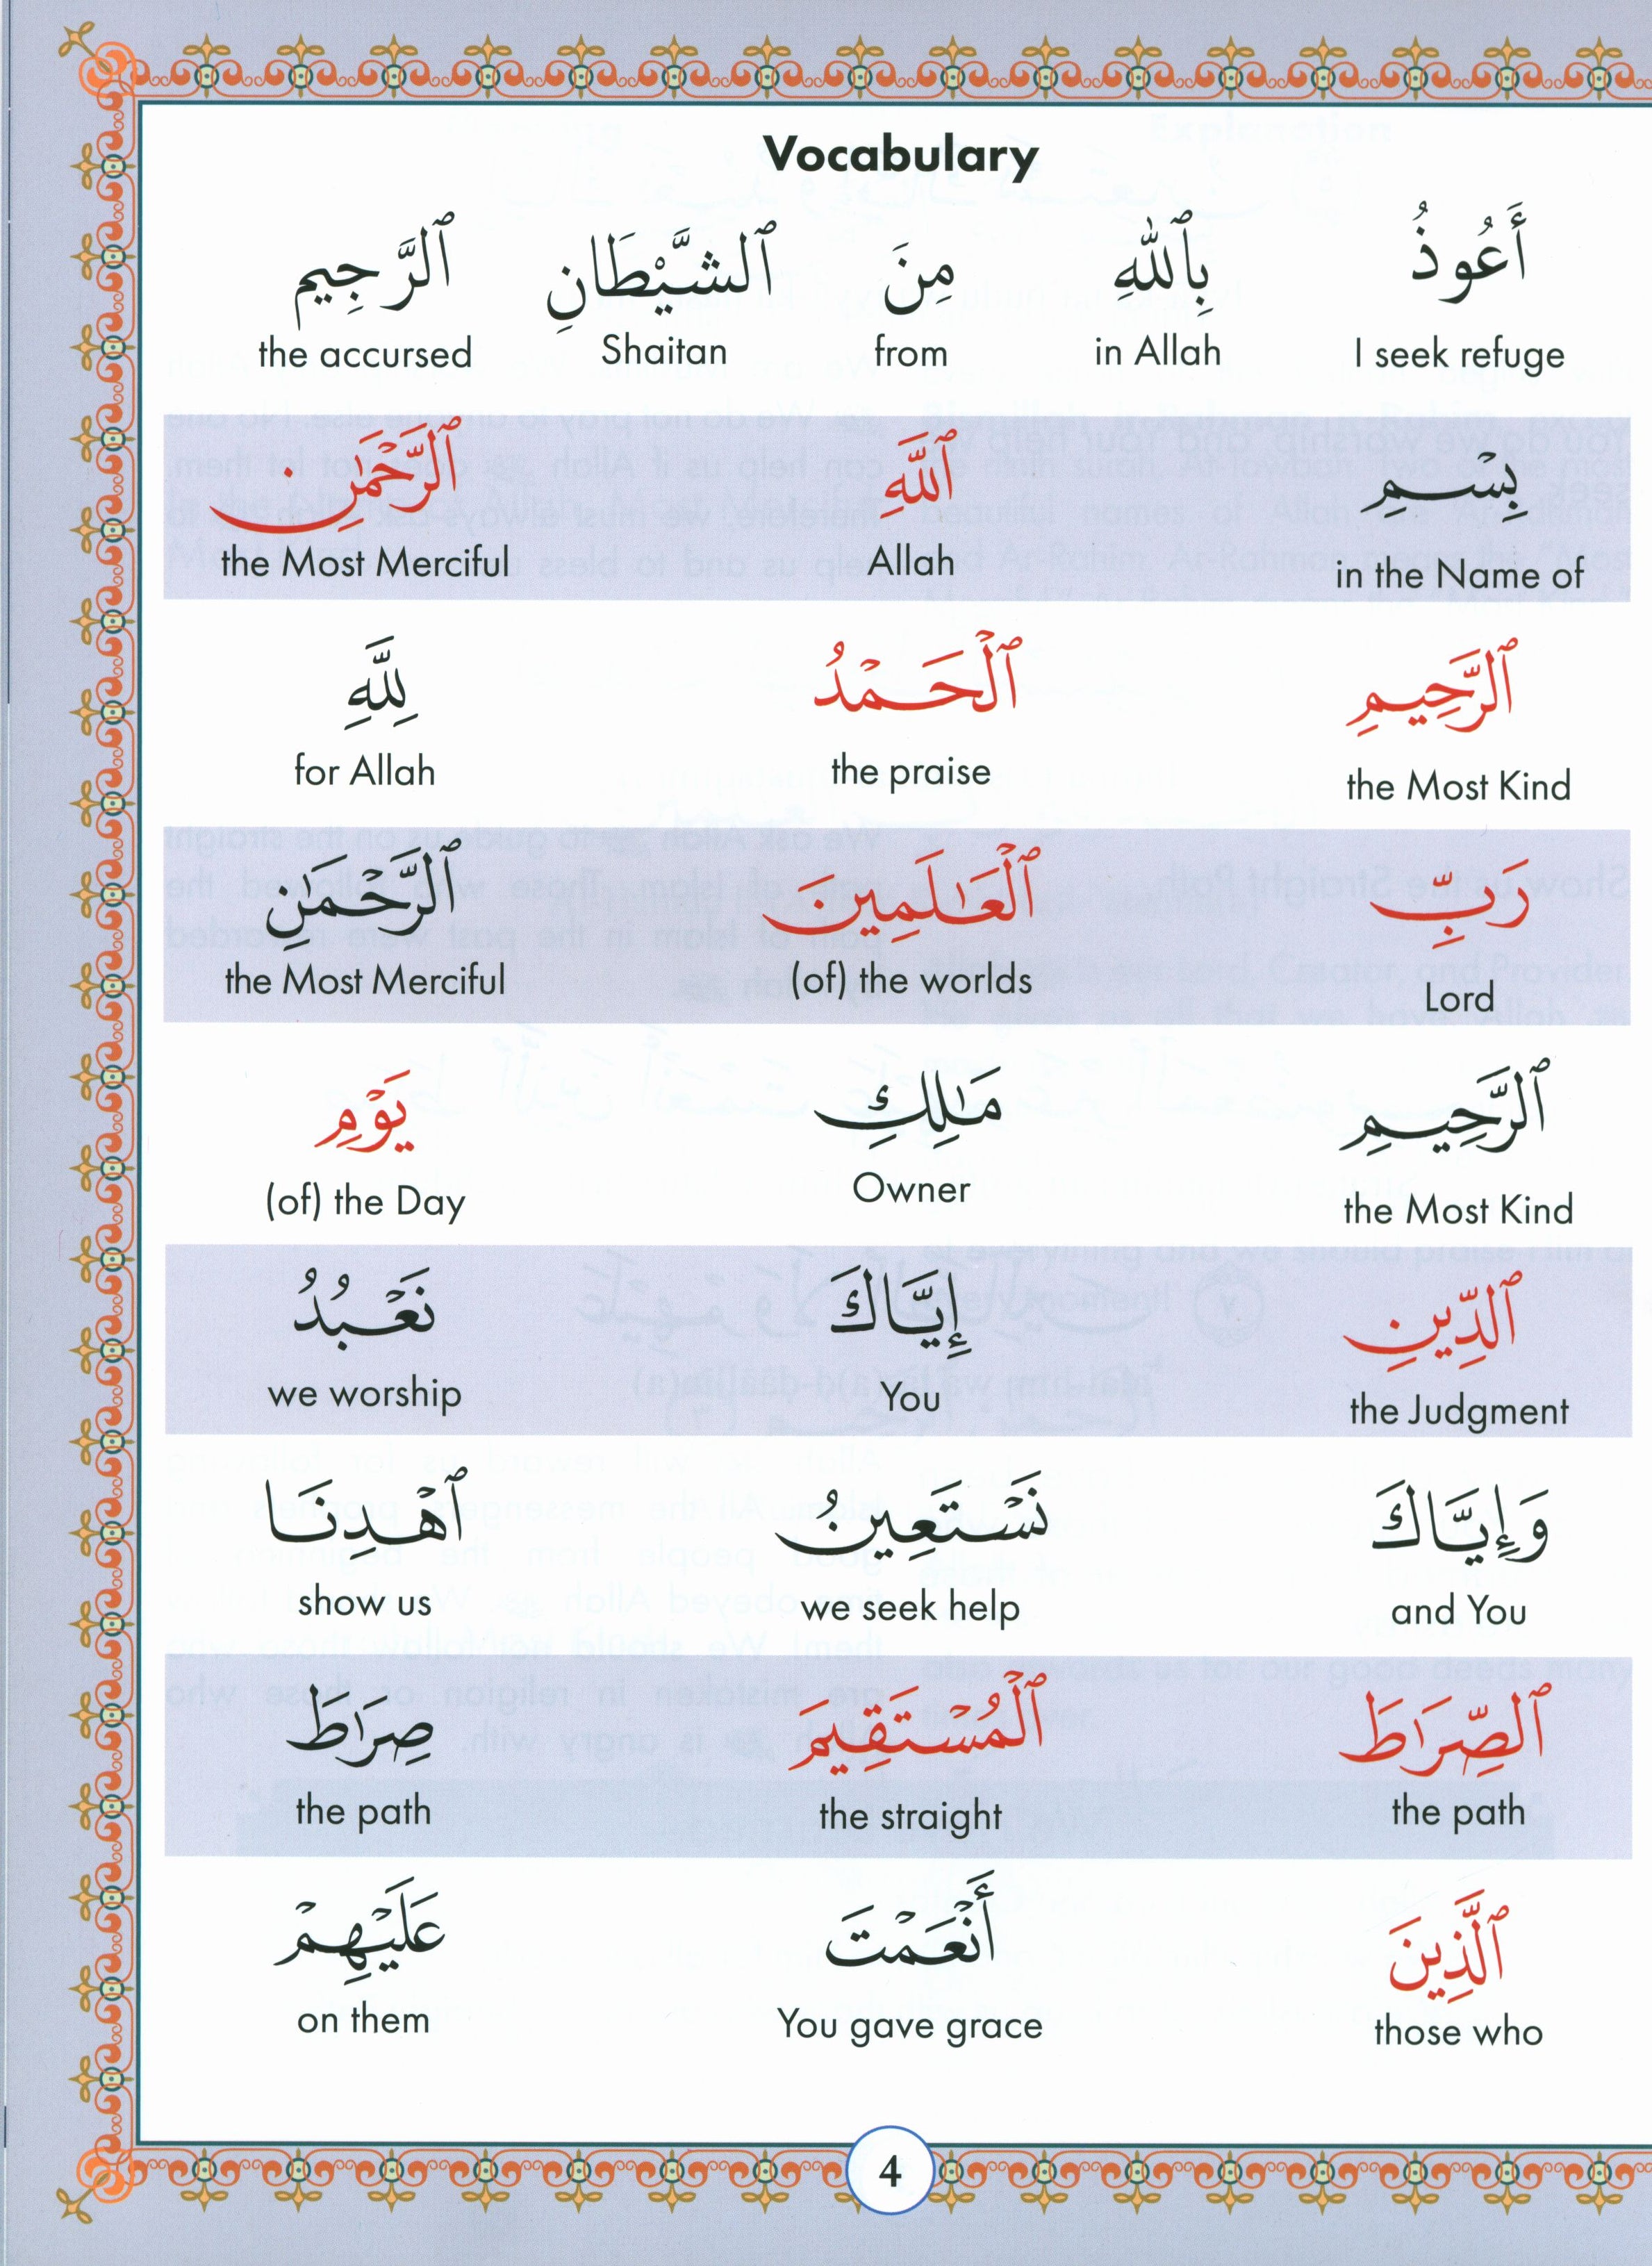 Vocabulary
أَعُوذُ بِٱللَّهِ مِنَ ٱلشَّيْطَانِ ٱلرَّجِيمِ
I seek refuge in Allah from Shaitan the accursed
بِسْمِ ٱللَّهِ ٱلرَّحْمَٰنِ
in the Name of Allah the Most Merciful
ٱلرَّحِيمِ ٱلْحَمْدُ لِلَّهِ
the Most Kind the praise for Allah
رَبِّ ٱلْعَٰلَمِينَ ٱلرَّحْمَٰنِ
Lord (of) the worlds the Most Merciful
ٱلرَّحِيمِ مَٰلِكِ يَوْمِ
the Most Kind Owner (of) the Day
ٱلدِّينِ إِيَّاكَ نَعْبُدُ
the Judgment You we worship
وَإِيَّاكَ نَسْتَعِينُ ٱهْدِنَا
and You we seek help show us
ٱلصِّرَٰطَ ٱلْمُسْتَقِيمَ صِرَٰطَ
the path the straight the path
ٱلَّذِينَ أَنْعَمْتَ عَلَيْهِمْ
those who You gave grace on them
4